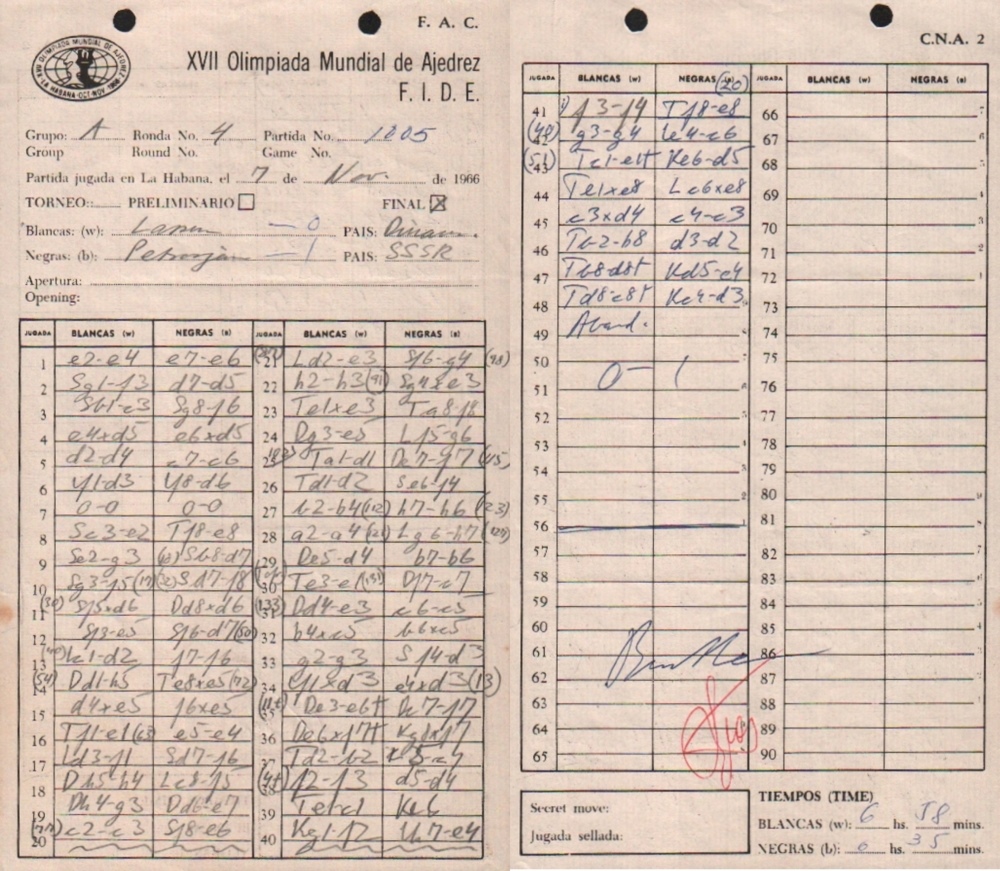 F. A. C.
XVII OLIMPIADA MUNDIAL DE AJEDREZ
LA HABANA-OCT-NOV. 1966
XVII Olimpiada Mundial de Ajedrez
F. I. D. E.
Grupo: A Ronda No. 4 Partida No. 1005
Group Round No. Game No.
Partida jugada en La Habana, el 7 de Nov. de 1966
TORNEO: PRELIMINARIO FINAL
Blancas: (w): Larsen – 0 PAIS:
Negras: (b): Petrosjan – 1 PAIS: SSSR
Apertura:
Opening:
JUGADA BLANCAS (w) NEGRAS (B) JUGADA BLANCAS (w) NEGRAS (B)
1 e2-e4 e7-e6 21 Ld2-e3 Sf6-g4 (98)
2 Sg1-f3 d7-d5 22 h2-h3 (91) Sg4xe3
3 Sb1-c3 Sg8-f6 23 Te1xe3 Ta8-f8
4 e4xd5 e6xd5 24 Dg3-e5 Lf5-g6
5 d2-d4 c7-c6 25 Ta1-d1 De7-f7
6 Lf1-d3 Lf8-d6 26 Td1-d2 Se6-f4
7 0-0 0-0 27 b2-b4 (112) h7-h6 (123)
8 Sc3-e2 Tf8-e8 28 a2-a4 Lg6-h7
9 Se2-g3 Sb8-d7 29 De5-d4 b7-b6
10 Sg3-f5 (17) Sd7-f8 30 Te3-e1 (131) Df7-c7
11 (30) Sf5xd6 Dd8xd6 31 (133) Dd4-e3 c6-c5
12 Sf3-e5 Sf6-d7 (50) 32 b4xc5 b6xc5
13 Lc1-d2 f7-f6 33 g2-g3 Sf4-d3
14 (54) Dd1-h5 Te8xe5 (72) 34 Lf1xd3 e4xd3 (13)
15 d4xe5 f6xe5 35 De3-e6† Dc7-f7
16 Tf1-e1 (63) e5-e4 36 De6xf7† Kg8xf7
17 Ld3-f1 Sd7-f6 37 Td2-b2
18 Dh5-h4 Lc8-f5 38 f2-f3 d5-d4
19 Dh4-g3 Dd6-e7 39 Te1-c1 Ke6
20 (77) c2-c3 Sf8-e6 40 Kg1-f2 Lh7-e4
C.N.A. 2
JUGADA BLANCAS (w) NEGRAS (B) JUGADA BLANCAS (w) NEGRAS (B)
(20)
41 f3-f4 Tf8-e8 66
42 g3-g4 Le4-c6 67
43 Tc1-e1† Ke6-d5 68
44 Te1xe8 Lc6xe8 69
45 c3xd4 c4-c3 70
46 Tb2-b8 d3-d2 71
47 Tb8-d8† Kd5-c4 72
48 Td8-c8† Kc4-d3 73
49 Aband. 74
50 75
51 0-1 76
52 77
53 78
54 79
55 80
56 81
57 82
58 83
59 84
60 85
61 86
62 87
63 88
64 89
65 90
Secret move:
Jugada sellada:
TIEMPOS (TIME)
BLANCAS (w): 6 hs. 58 mins.
NEGRAS (b): 0 hs. 35 mins.